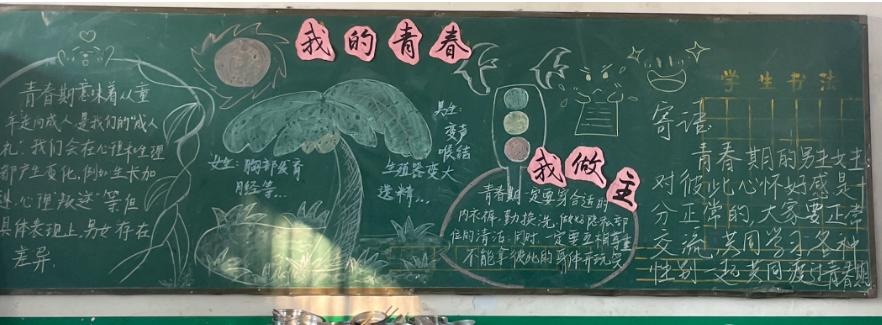 我的青春
我做主
学生书法
青春期意味着从童
年走向成人是我们的“成人
礼”。我们会在心理和生理
都产生变化,例如生长加
速、心理叛逆等但
具体表现上,男女存在
差异.
女生: 胸部发育
月经等...
男生:
变声
喉结
生殖器变大
遗精...
青春期一定要穿合适的
内衣裤,勤换洗,做好隐私部
位的清洁;同时,一定要互相尊重
不能拿彼此的身体开玩笑
寄语
青春期的男生女生
对彼此心怀好感是十
分正常的,大家要正常
交流,共同学习,各种
性别一起共同渡过青春期